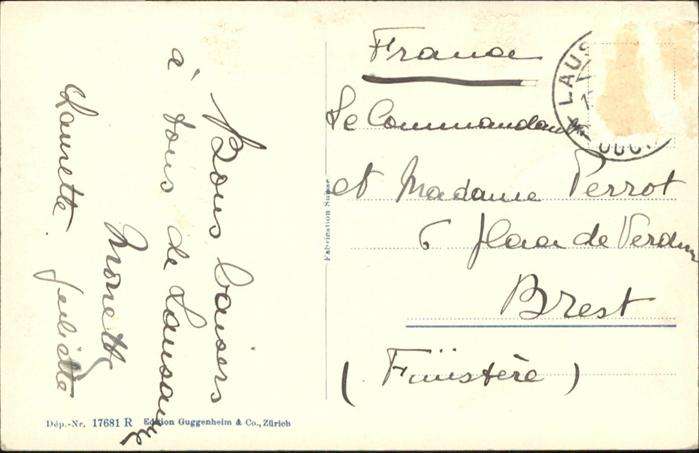 Bons baisers
à tous de Lausanne
Laurette Juliette
France
Le Commandant
et Madame Perrot
6 place de Verdun
Brest
(Finistère)
LAUS
Fabrication Suisse
Dép.-Nr. 17681 R Edition Guggenheim & Co., Zürich